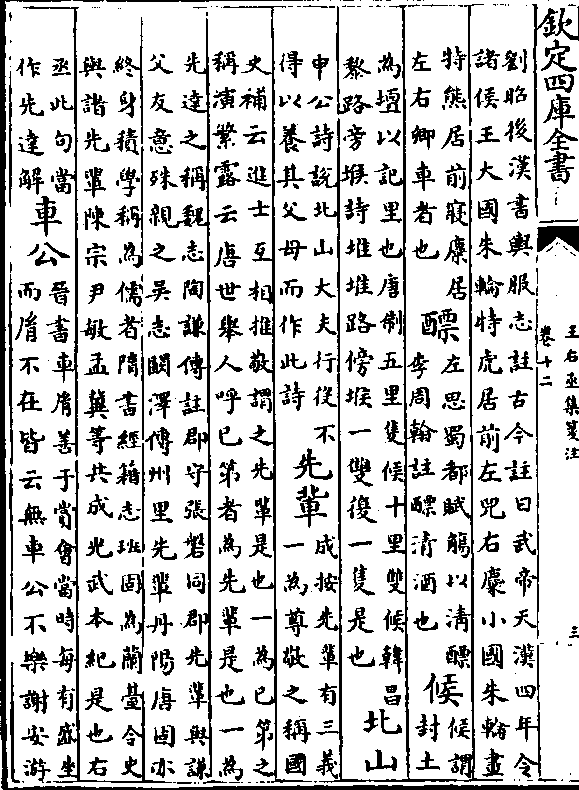 欽定四庫全書
王右丞集箋注
卷十二
三
劉昭後漢書輿服志註古今註曰武帝天漢四年令
諸侯王大國朱輪特虎居前左兕右麋小國朱輪畫
特熊居前寢麋居
左右卿車者也
醥
左思蜀都賦觴以清醥
李周翰註醥清酒也
候
候謂
封土
為壇以記里也唐制五里隻候十里雙候韓昌
黎路旁堠詩堆堆路傍堠一雙復一隻是也
北山
申公詩說北山大夫行役不
得以養其父母而作此詩
先輩
成按先輩有三義
一為尊敬之稱國
史補云進士互相推敬謂之先輩是也一為已第之
稱演繁露云唐世舉人呼已第者為先輩是也一為
先達之稱魏志陶謙傳註郡守張磐同郡先輩與謙
父友意殊親之吳志闞澤傳州里先輩丹陽唐固亦
終身積學稱為儒者隋書經籍志班固為蘭臺令史
與諸先輩陳宗尹敏孟冀等共成光武本紀是也右
丞此句當
作先達解
車公
晉書車胤善于賞會當時每有盛坐
而胤不在皆云無車公不樂謝安游